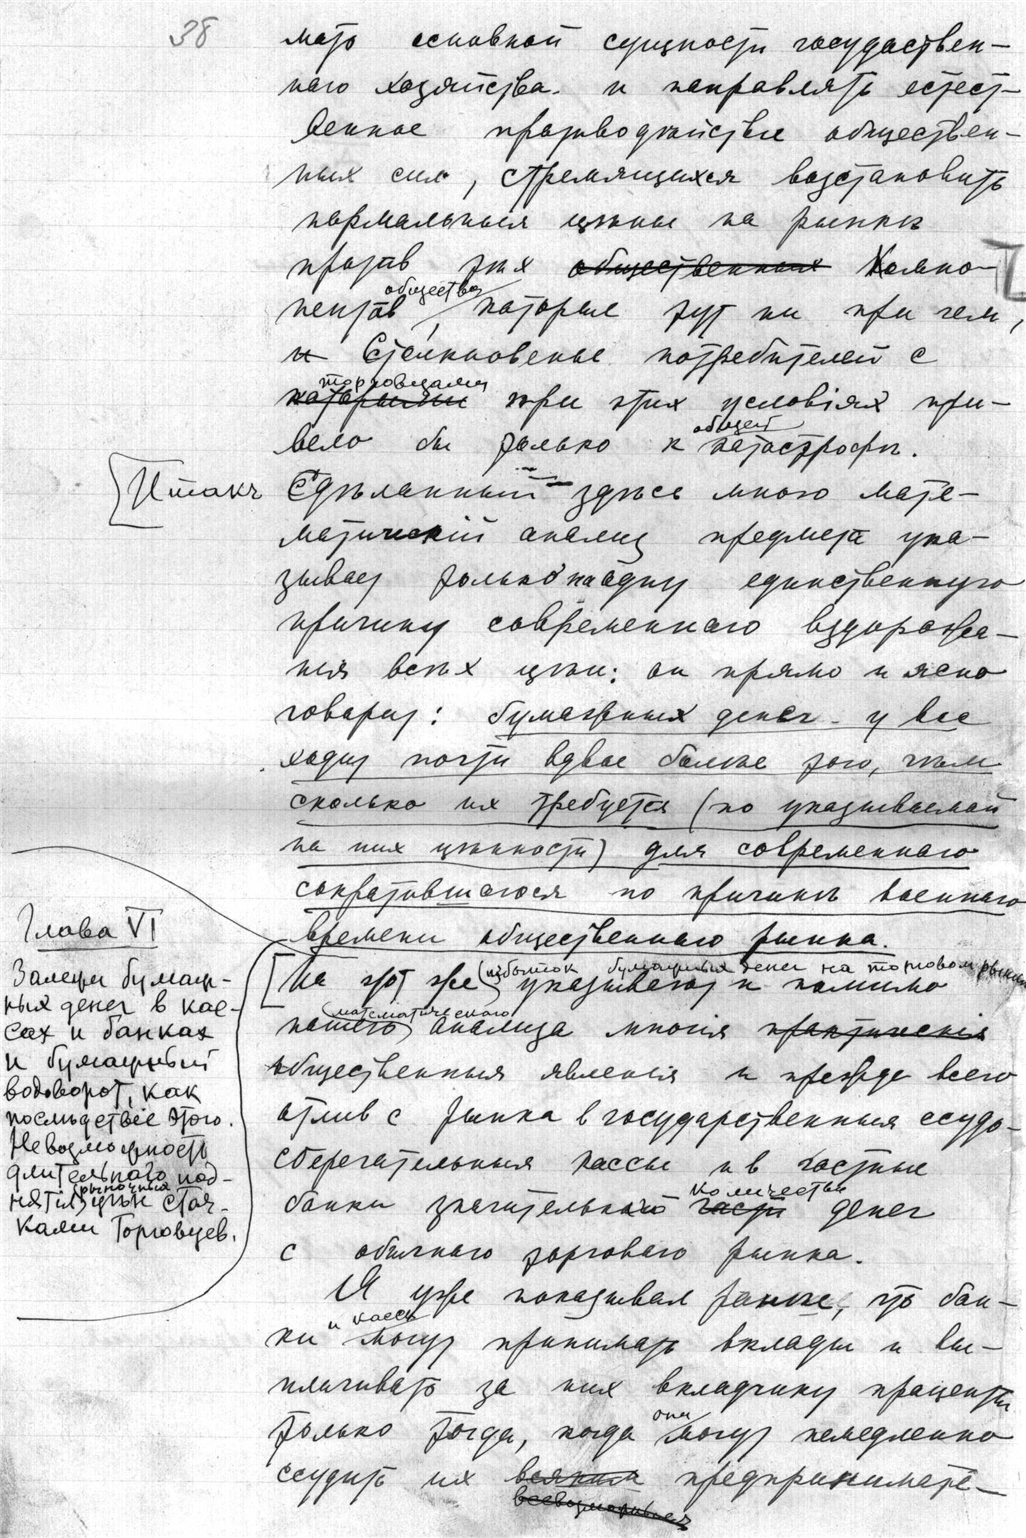 38
мать основной сущности государствен-
наго хозяйства. и направлять естест-
венное противодѣйствіе обществен-
ных сил, стремящихся возстановить
нормальныя цѣны на рынкѣ
против тѣх общественных компо-
нентов общества, которые тут ни при чем,
и Столкновенье потребителей с
которыми торговцами при этих условіях при-
вело бы только к общей катастрофѣ.
Итакъ Сдѣланный здѣсь мною мате-
матическій анализ предмета ука-
зывает только на одну единственную
причину современнаго вздорожа-
нія всѣх цѣн: он прямо и ясно
говорит: бумажных денег у нас
ходит почти вдвое болѣе того, чѣм
сколько их требуется (по указываемой
на них цѣнности) для современнаго
сократившагося по причинѣ военнаго
времени общественнаго рынка.
Глава VI
Залежи бумаж-
ных денег в кас-
сах и банках
и бумажный
водоворот, как
послѣдствіе этого.
Невозможность
длительнаго под-
нятія рыночных цѣн стач-
ками торговцев.
На этот же избыток бумажных денег на торговом рынкѣ указывают и помимо
нашего математическаго анализа многія практическія
общественныя явленія и прежде всего
отлив с рынка в государственныя ссудо-
сберегательныя кассы и в частные
банки значительнаго части количества денег
с обычнаго торговаго рынка.
Я уже показывал ранѣе, что бан-
ки и кассы могут принимать вклады и вы-
плачивать за них вкладчику проценты
только тогда, когда они могут немедленно
ссудить их всяким всевозможным предпринимате-